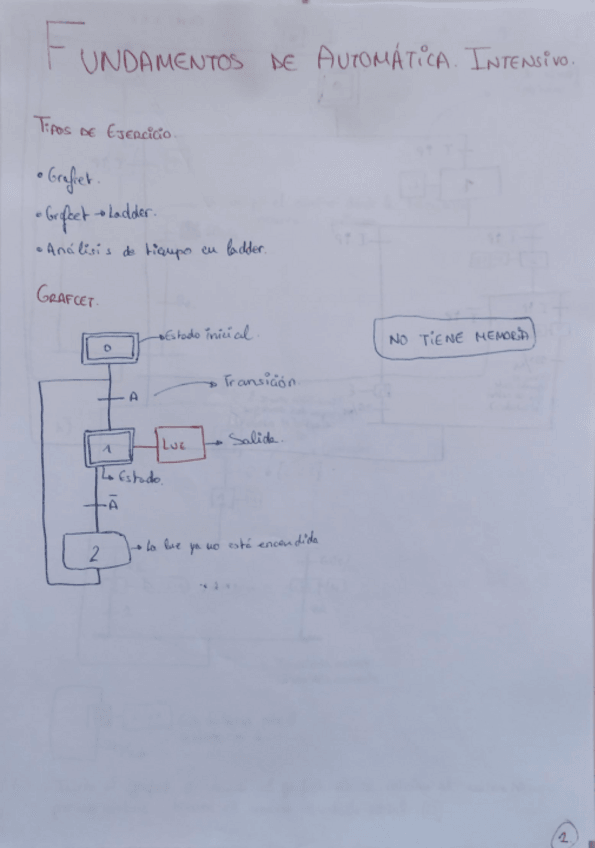 FUNDAMENTOS DE AUTOMÁTICA. INTENSIVO.
TIPOS DE EJERCICIO.
• Grafcet.
• Grafcet → Ladder.
• Análisis de tiempo en ladder.
GRAFCET.
0 → Estado inicial.
NO TIENE MEMORIA
A → Transición.
1 LUZ → Salida.
↳ Estado.
Ā
2 → La luz ya no está encendida
2